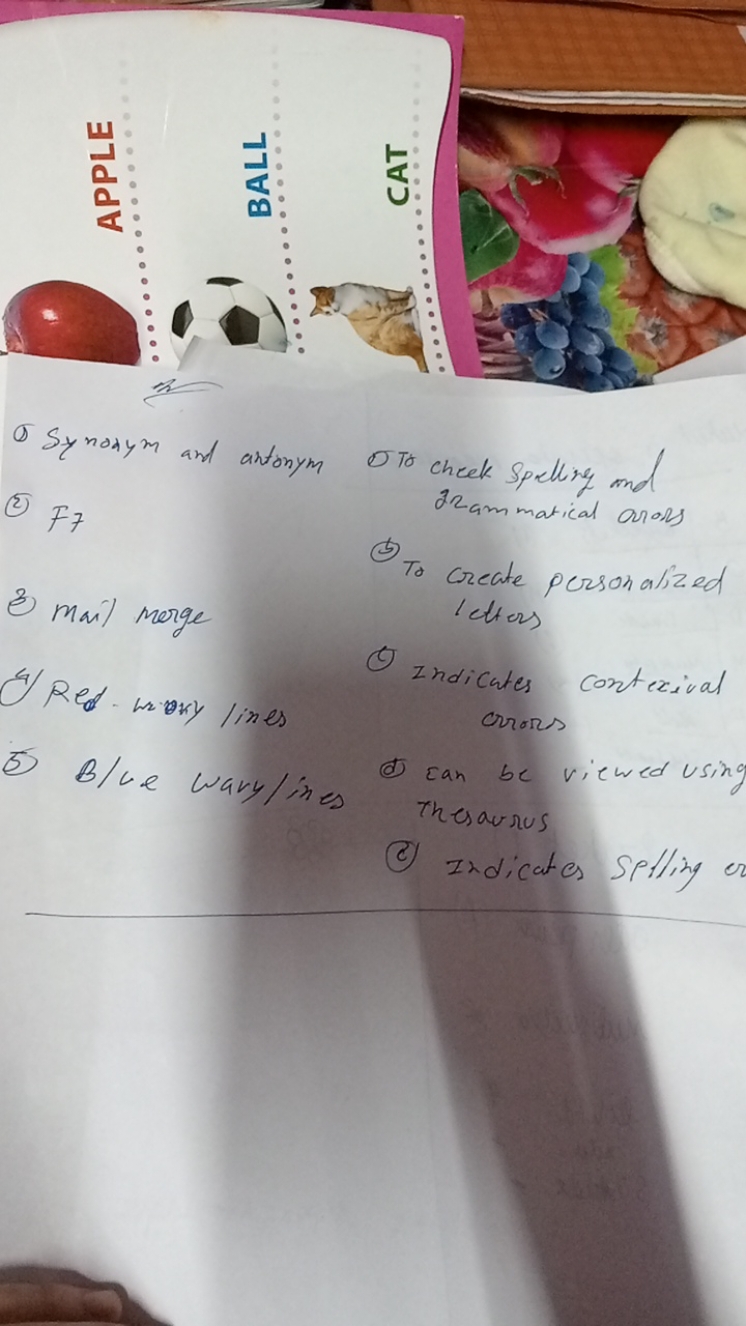 APPLE
BALL
CAT
① Synonym and antonym
② F7
③ Mail merge
④ Red wavy lines
⑤ Blue wavy lines
To check Spelling and
grammatical errors
ⓑ To create personalized
letters
ⓒ Indicates
errors
ⓓ can be viewed using
Thesaurus
ⓔ Indicates Spelling